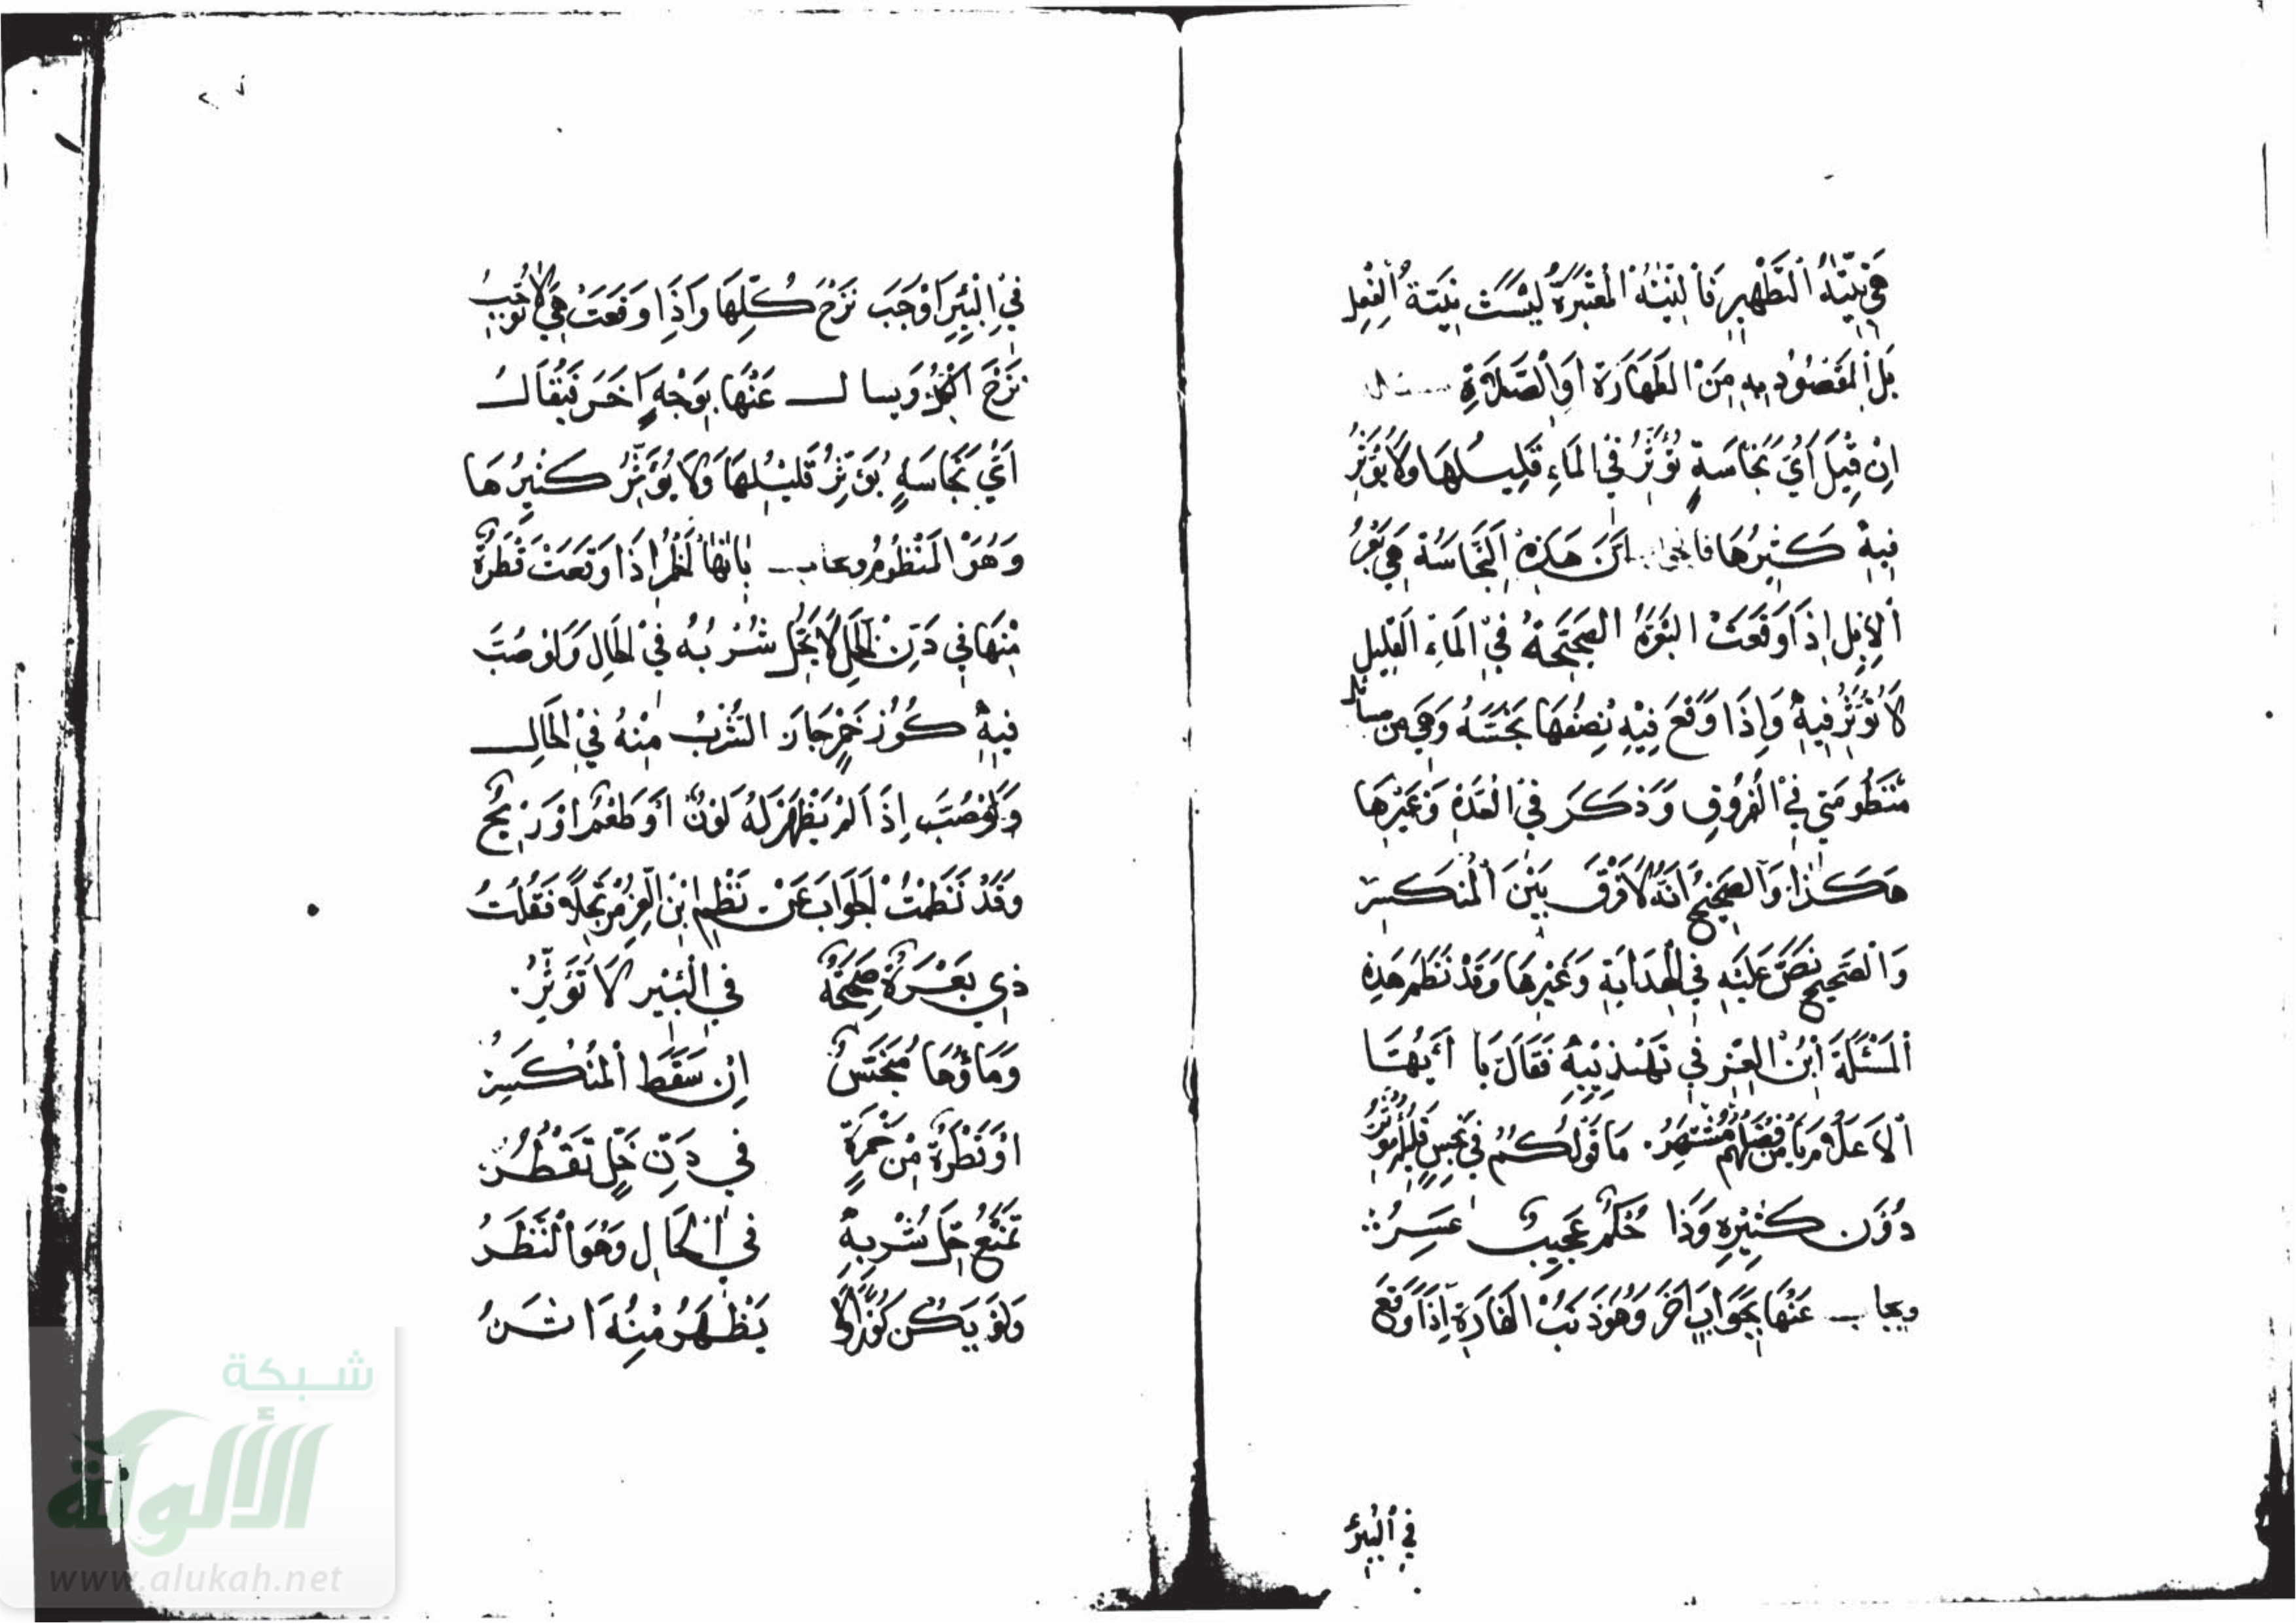 هِيَ نِيَّةُ التَّطْهِيرِ فَالنِّيَّةُ الْمُعْتَبَرَةُ لَيْسَتْ نِيَّةَ الْفِعْلِ
بَلِ الْمَقْصُودِ بِهِ مِنَ الطَّهَارَةِ أَوِ الصَّلَاةِ
اِنْ قِيلَ اَيُّ نَجَاسَةٍ تُؤَثِّرُ فِي الْمَاءِ قَلِيلُهَا وَلَا يُؤَثِّرُ
فِيهِ كَثِيرُهَا فالجواب اَنَّ هَذِهِ النَّجَاسَةَ هِيَ بَعْرُ
الْاِبِلِ اِذَا وَقَعَتْ الْبَعْرَةُ الصَّحِيحَةُ فِي الْمَاءِ الْقَلِيلِ
لَا تُؤَثِّرُ فِيهِ وَاِذَا وَقَعَ فِيهِ نِصْفُهَا نَجَّسَهُ وَهِيَ مِنْ مسائل
مَنْظُومَتِي فِي الْفُرُوقِ وَذَكَرَ فِي الْعُدَّةِ وَغَيْرِهَا
هَكَذَا وَالصَّحِيحُ اَنَّهُ لَا فَرْقَ بَيْنَ الْمُنْكَسِرِ
وَالصَّحِيحِ نَصَّ عَلَيْهِ فِي الْهِدَايَةِ وَغَيْرِهَا وَقَدْ نَظَمَ هَذِهِ
الْمَسْئَلَةَ ابْنُ الْعِزِّ فِي تَهْذِيبِهِ فَقَالَ يَا اَيُّهَا
الْاَعْلَامُ يَا مَنْ فَضْلُهُمْ مُشْتَهِرُ. مَا قَوْلُكُمْ فِي نَجِسٍ قَلِيلُهُ يُؤَثِّرُ
دُوْنَ كَثِيْرِهِ وَذَا حُكْمٌ عَجِيبٌ عَسِرُ
ويجاب عَنْهَا بِجَوَابٍ اَخَرَ وَهُوَ ذَنَبُ الْفَارَةِ اِذَا وَقَعَ
فِي الْبِيرِ
فِي الْبِئْرِ اَوْجَبَ نَزْحَ كُلِّهَا وَاِذَا وَقَعَتْ هِيَ لَا تُوجِبُ
نَزْحَ الْكُلِّ وَيسال عَنْهَا بِوَجْهٍ اَخَرَ فَيُقَالُ
اَيُّ نَجَاسَةٍ يُؤَثِّرُ قَلِيْلُهَا وَلَا يُؤَثِّرُ كَثِيرُهَا
وَهُوَ الْمَنْظُومُ ويجاب بِاَنَّهَا الْخَمْرُ اِذَا وَقَعَتْ قَطْرَةٌ
مِنْهَا فِي دَنِّ الْخَلِّ لَا يَحِلُّ شُرْبُهُ فِي الْحَالِ وَلَوْ صُبَّ
فِيهِ كُوْزُ خَمْرٍ جَازَ الشُّرْبُ مِنْهُ فِي الْحَالِ
وَلَوْ صُبَّ اِذَا لَمْ يَظْهَرْ لَهُ لَوْنٌ اَوْ طَعْمٌ اَوْ رِيحٌ
وَقَدْ نَظَمْتُ الْجَوَابَ عَنْ نَظْمِ ابْنِ الْعِزِّ مُرْتَجِلًا فَقُلْتُ
ذِي بَعْرَةٌ صَحِيحَةٌ فِي الْبِئْرِ لَا تُؤَثِّرُ.
وَمَاؤُهَا مُنَجَّسٌ اِنْ سَقَطَ الْمُنْكَسِرُ
اَوْ قَطْرَةٌ مِنْ خَمْرَةٍ فِي دَنِّ خَلٍّ تَقْطُرُ
تَمْنَعُ حِلَّ شُرْبِهِ فِي الْحَالِ وَهُوَ النَّظَرُ
وَلَوْ يَكُنْ كُوْزًا وَلَا يَظْهَرُ مِنْهُ اَثَرُ
شبكة
الألوكة
www.alukah.net